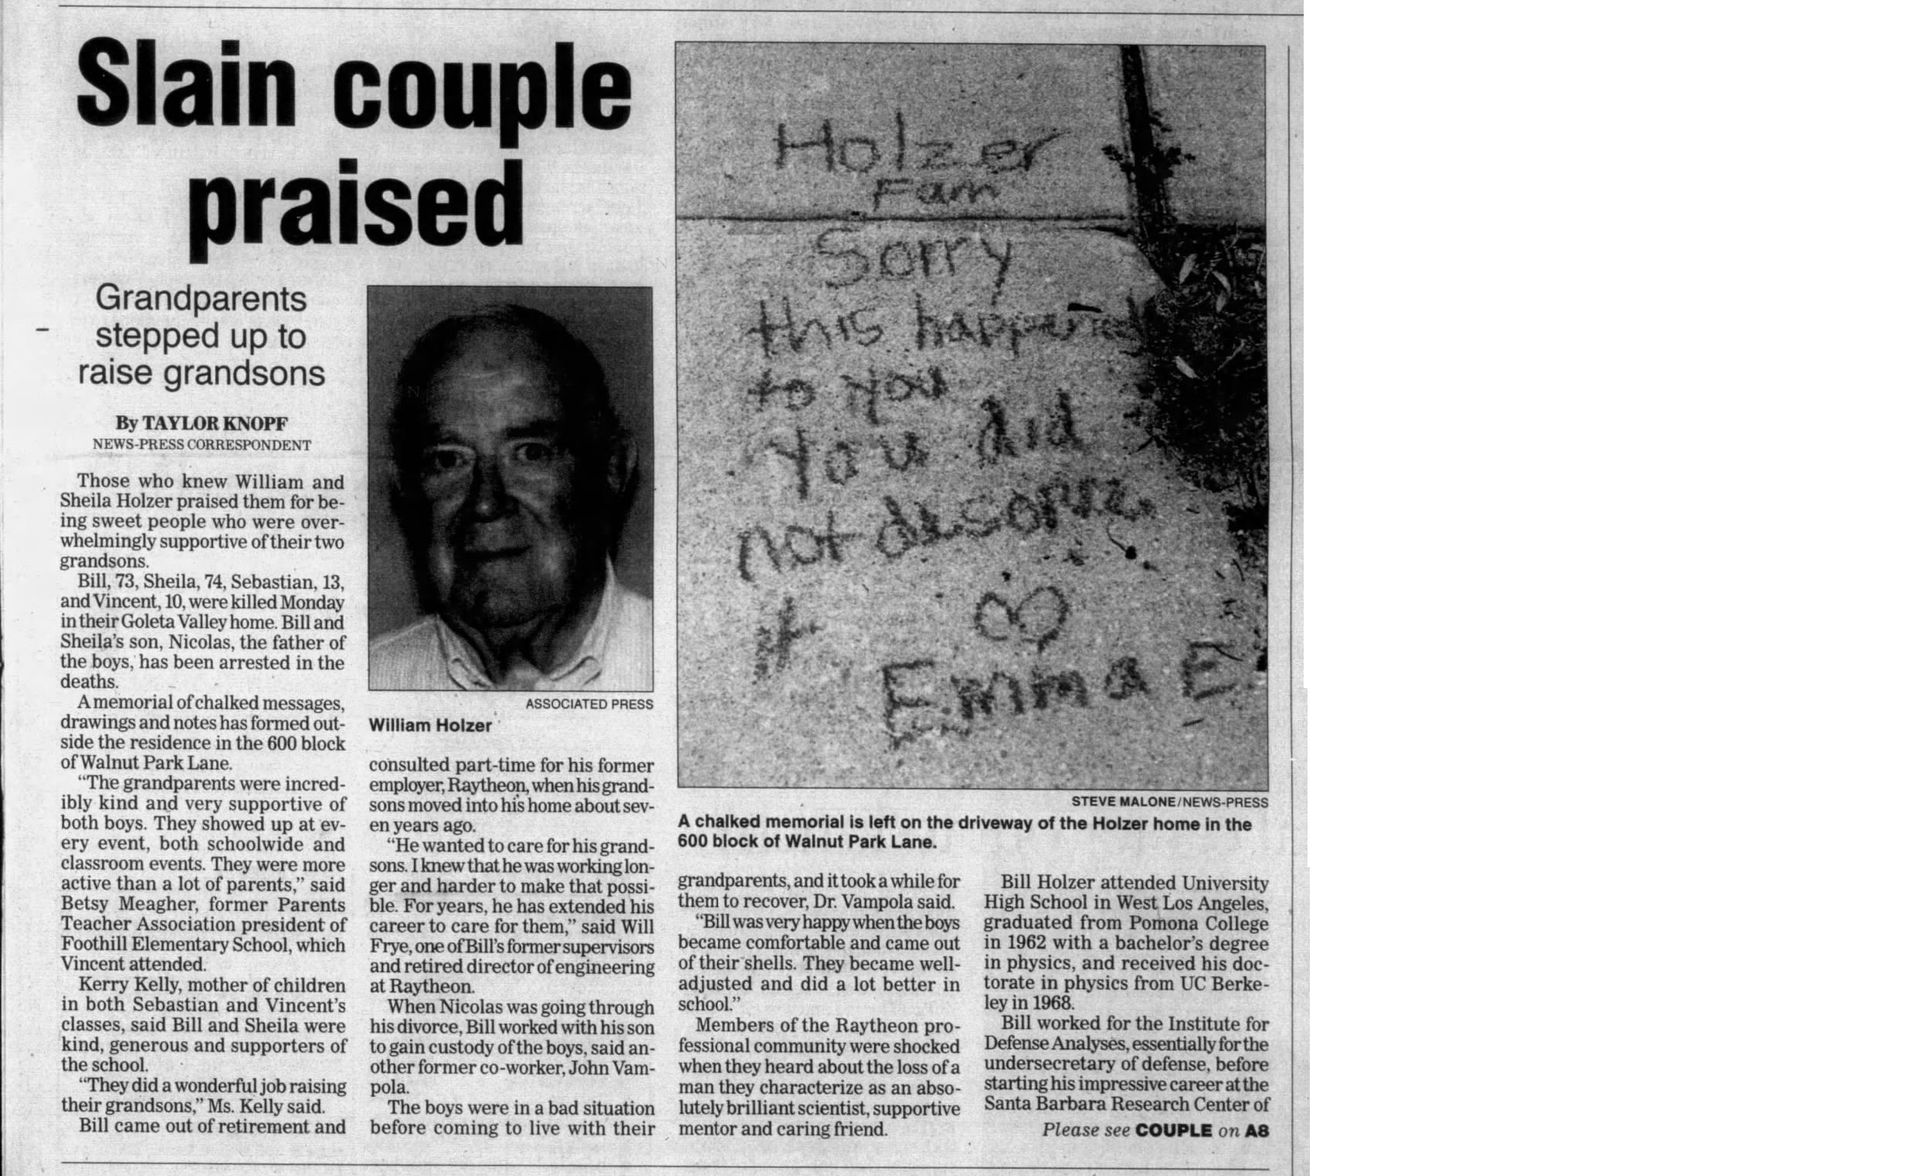 Slain couple
praised
Grandparents
stepped up to
raise grandsons
By TAYLOR KNOPF
NEWS-PRESS CORRESPONDENT
Those who knew William and
Sheila Holzer praised them for be-
ing sweet people who were over-
whelmingly supportive of their two
grandsons.
Bill, 73, Sheila, 74, Sebastian, 13,
and Vincent, 10, were killed Monday
in their Goleta Valley home. Bill and
Sheila's son, Nicolas, the father of
the boys, has been arrested in the
deaths.
A memorial of chalked messages,
drawings and notes has formed out-
side the residence in the 600 block
of Walnut Park Lane.
"The grandparents were incred-
ibly kind and very supportive of
both boys. They showed up at ev-
ery event, both schoolwide and
classroom events. They were more
active than a lot of parents," said
Betsy Meagher, former Parents
Teacher Association president of
Foothill Elementary School, which
Vincent attended.
Kerry Kelly, mother of children
in both Sebastian and Vincent's
classes, said Bill and Sheila were
kind, generous and supporters of
the school.
"They did a wonderful job raising
their grandsons," Ms. Kelly said.
Bill came out of retirement and
ASSOCIATED PRESS
William Holzer
consulted part-time for his former
employer, Raytheon, when his grand-
sons moved into his home about sev-
en years ago.
"He wanted to care for his grand-
sons. I knew that he was working lon-
ger and harder to make that possi-
ble. For years, he has extended his
career to care for them," said Will
Frye, one of Bill's former supervisors
and retired director of engineering
at Raytheon.
When Nicolas was going through
his divorce, Bill worked with his son
to gain custody of the boys, said an-
other former co-worker, John Vam-
pola.
The boys were in a bad situation
before coming to live with their
Holzer
Fam
Sorry
this happened
to you
You did
not
it
Emma E
STEVE MALONE/NEWS-PRESS
A chalked memorial is left on the driveway of the Holzer home in the
600 block of Walnut Park Lane.
grandparents, and it took a while for
them to recover, Dr. Vampola said.
"Bill was very happy when the boys
became comfortable and came out
of their shells. They became well-
adjusted and did a lot better in
school."
Members of the Raytheon pro-
fessional community were shocked
when they heard about the loss of a
man they characterize as an abso-
lutely brilliant scientist, supportive
mentor and caring friend.
Bill Holzer attended University
High School in West Los Angeles,
graduated from Pomona College
in 1962 with a bachelor's degree
in physics, and received his doc-
torate in physics from UC Berke-
ley in 1968.
Bill worked for the Institute for
Defense Analyses, essentially for the
undersecretary of defense, before
starting his impressive career at the
Santa Barbara Research Center of
Please see COUPLE on A8